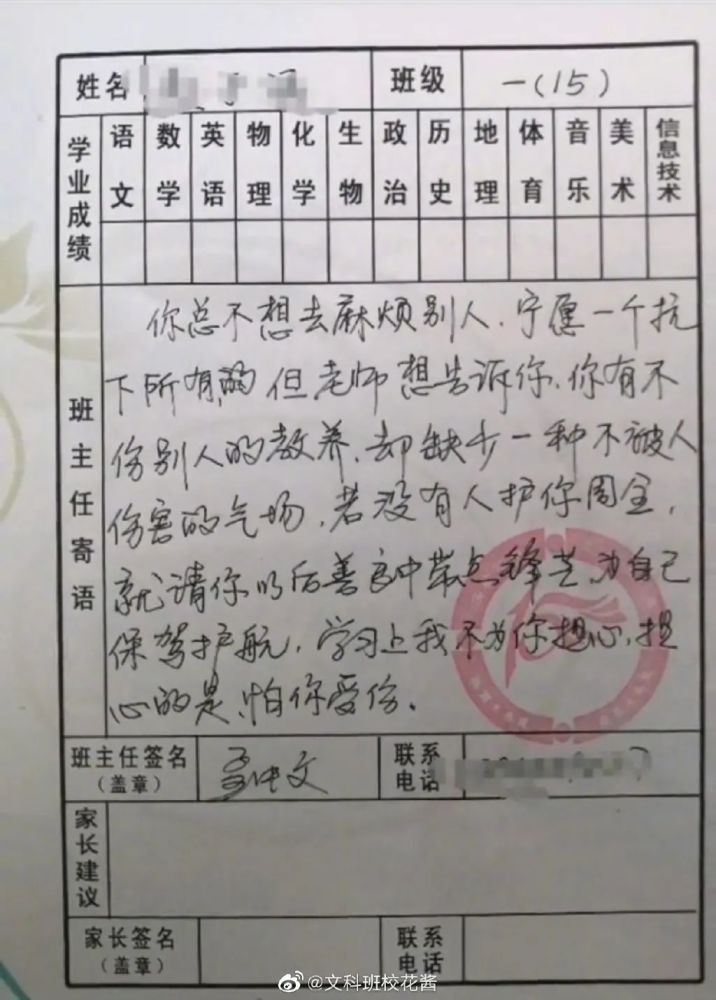 姓名 班级 一(15)
学业成绩 语文 数学 英语 物理 化学 生物 政治 历史 地理 体育 音乐 美术 信息技术
班主任寄语
你总不想去麻烦别人,宁愿一个抗
下所有的 但老师想告诉你,你有不
伤别人的教养,却缺少一种不被人
伤害的气场,若没有人护你周全,
就请你以后善良中带点锋芒,为自己
保驾护航,学习上我不为你担心,担
心的是,怕你受伤.
班主任签名 文 联系
(盖章) 电话
家长建议
家长签名 联系
(盖章) 电话
@文科班校花酱